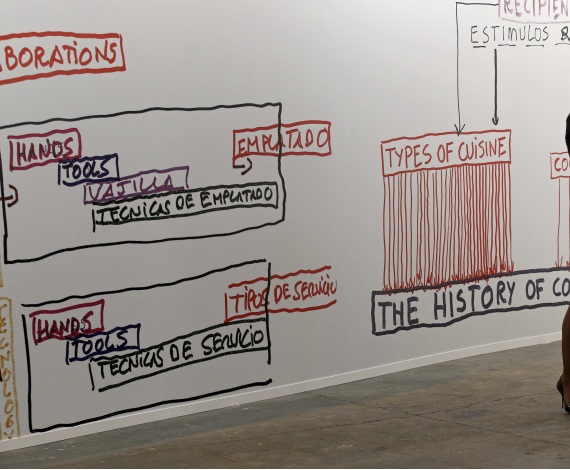 BORATIONS
HANDS
TOOLS
VAJILLA
TECNICAS DE EMPLATADO
EMPLATADO
HANDS
TOOLS
TECNICAS DE SERVICIO
TIPOS DE SERVICIO
TECNOLOGY
RECIPIEN
ESTIMULOS R
TYPES OF CUISINE
CO
THE HISTORY OF CO